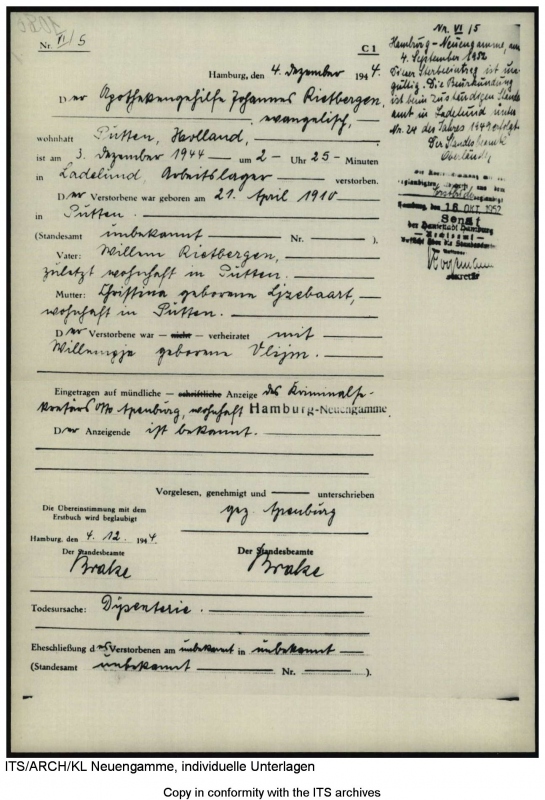 Nr. VI/5
C 1
Hamburg, den 4. Dezember 1944.
Der Apothekengehilfe Johannes Rietbergen,
evangelisch,
wohnhaft Putten, Holland,
ist am 3. Dezember 1944 um 2 Uhr 25 Minuten
in Ladelund, Arbeitslager verstorben.
Der Verstorbene war geboren am 21. April 1910
in Putten.
(Standesamt unbekannt Nr. ).
Vater: Willem Rietbergen,
zuletzt wohnhaft in Putten.
Mutter: Christina geborene Ijzebaart,
wohnhaft in Putten.
Der Verstorbene war — nicht — verheiratet mit
Willempje geborene Vlijm.
Eingetragen auf mündliche — schriftliche Anzeige des Kriminalse-
kretärs Otto Apenburg, wohnhaft Hamburg-Neuengamme.
Der Anzeigende ist bekannt.
Vorgelesen, genehmigt und unterschrieben
gez. Apenburg
Die Übereinstimmung mit dem
Erstbuch wird beglaubigt
Hamburg, den 4. 12. 1944.
Der Standesbeamte
Brake
Der Standesbeamte
Brake
Todesursache: Dysenterie.
Eheschließung des Verstorbenen am unbekannt in unbekannt
(Standesamt unbekannt Nr. ).
Nr. VI/5
Hamburg-Neuengamme, am
4. September 1952
Dieser Sterbeeintrag ist un-
gültig. Die Beurkundung
ist beim zuständigen Standes-
amt in Ladelund unter
Nr. 24 des Jahres 1949 erfolgt.
Der Standesbeamte
Hamburg, den 18. OKT. 1952
Senat
der Hansestadt Hamburg
ITS/ARCH/KL Neuengamme, individuelle Unterlagen
Copy in conformity with the ITS archives